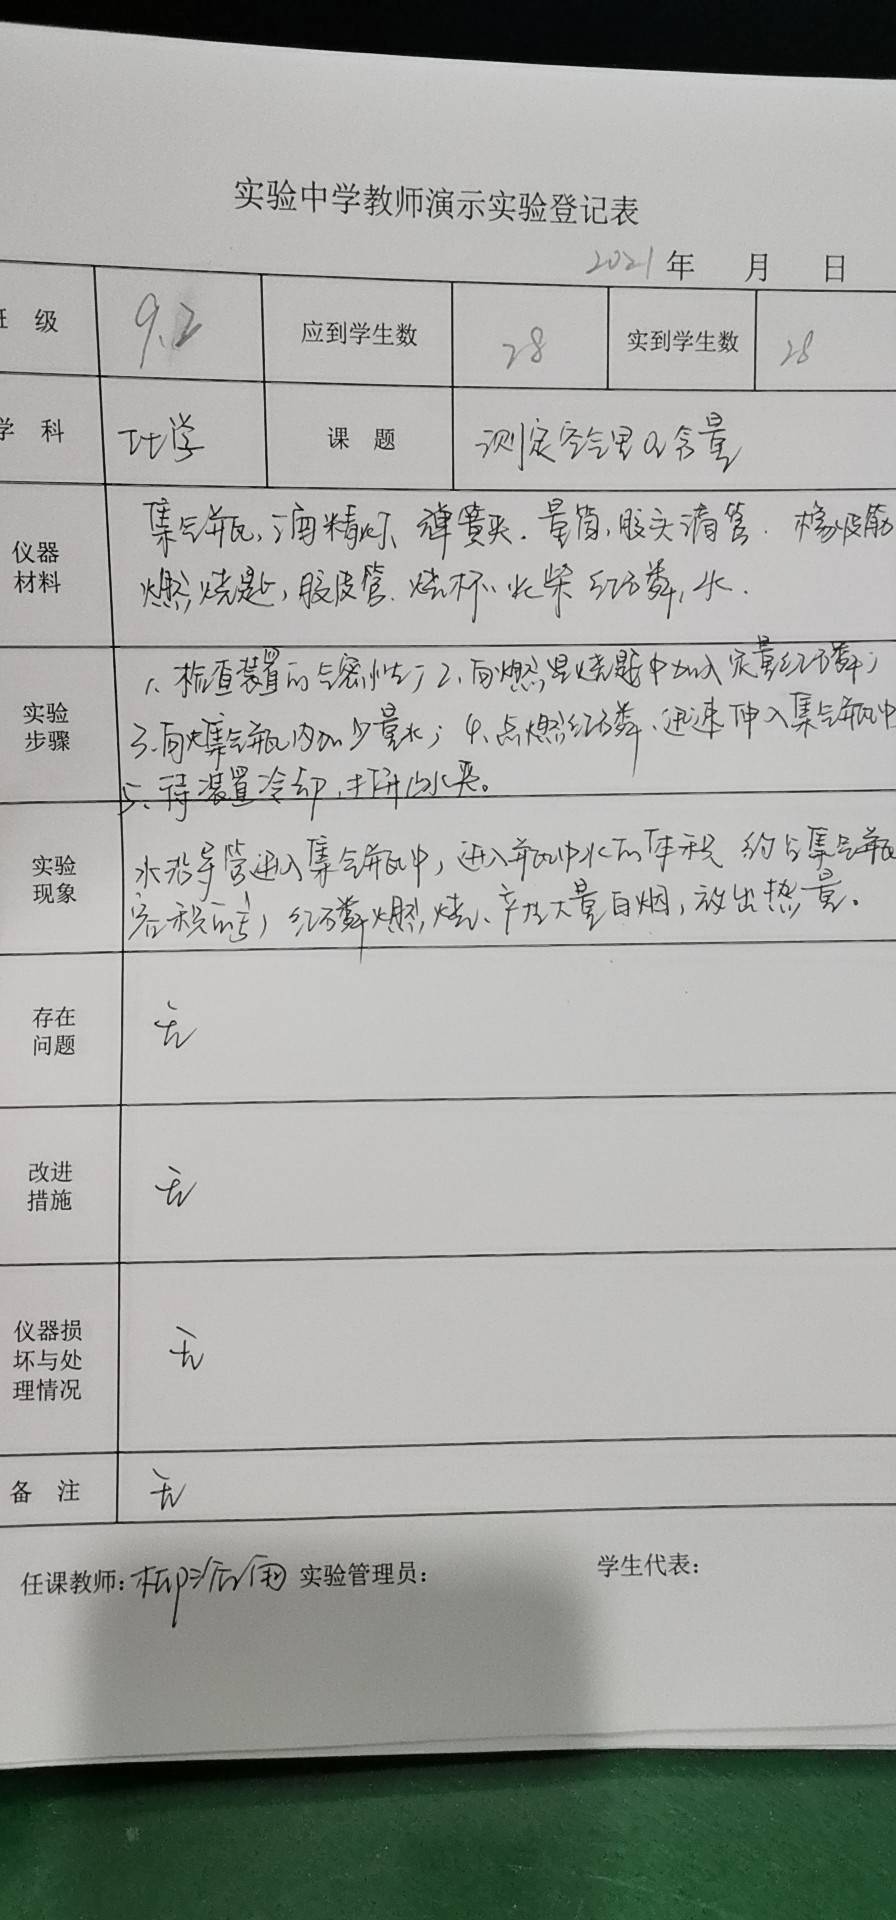 实验中学教师演示实验登记表
2021年 月 日
班 级 9.2 应到学生数 28 实到学生数 28
学 科 化学 课 题 测定空气里O₂含量
仪器材料 集气瓶,酒精灯、弹簧夹.量筒,胶头滴管.橡皮筋
燃烧匙,胶皮管.烧杯、火柴 红磷,水.
实验步骤 1、检查装置的气密性;2、向燃烧匙中加入定量红磷;
3、向集气瓶内加少量水;4、点燃红磷、迅速伸入集气瓶中
5、待装置冷却,打开止水夹。
实验现象 水沿导管进入集气瓶中,进入瓶中水的体积 约占集气瓶
容积的1/5;红磷燃烧、产生大量白烟,放出热量。
存在问题 无
改进措施 无
仪器损坏与处理情况 无
备 注 无
任课教师: 实验管理员: 学生代表: